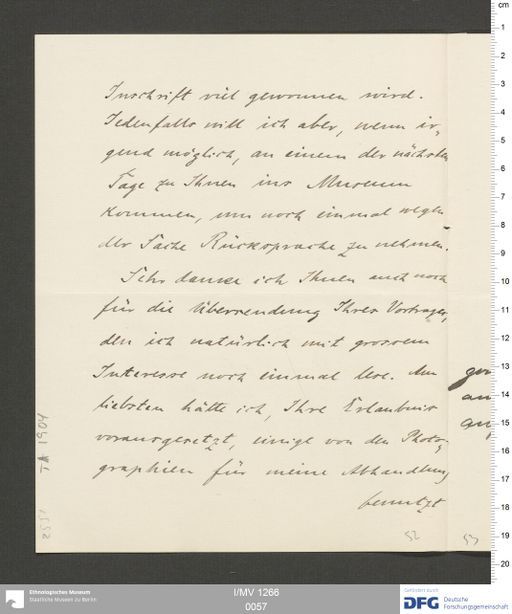 Inschrift viel gewonnen wird.
Jedenfalls will ich aber, wenn ir-
gend möglich, an einem der nächsten
Tage zu Ihnen ins Museum
kommen, um noch einmal wegen
der Sache Rücksprache zu nehmen.
Sehr danke ich Ihnen auch noch
für die Übersendung Ihres Vortrages,
den ich natürlich mit grossem
Interesse noch einmal lese. Am
liebsten hätte ich, Ihre Erlaubnis
vorausgesetzt, einige von den Photo-
graphien für meine Abhandlung
benutzt
52
53
TA 1904
cm
1
2
3
4
5
6
7
8
9
10
11
12
13
14
15
16
17
18
19
20
Ethnologisches Museum
Staatliche Museen zu Berlin
I/MV 1266
0057
Gefördert durch
DFG Deutsche
Forschungsgemeinschaft